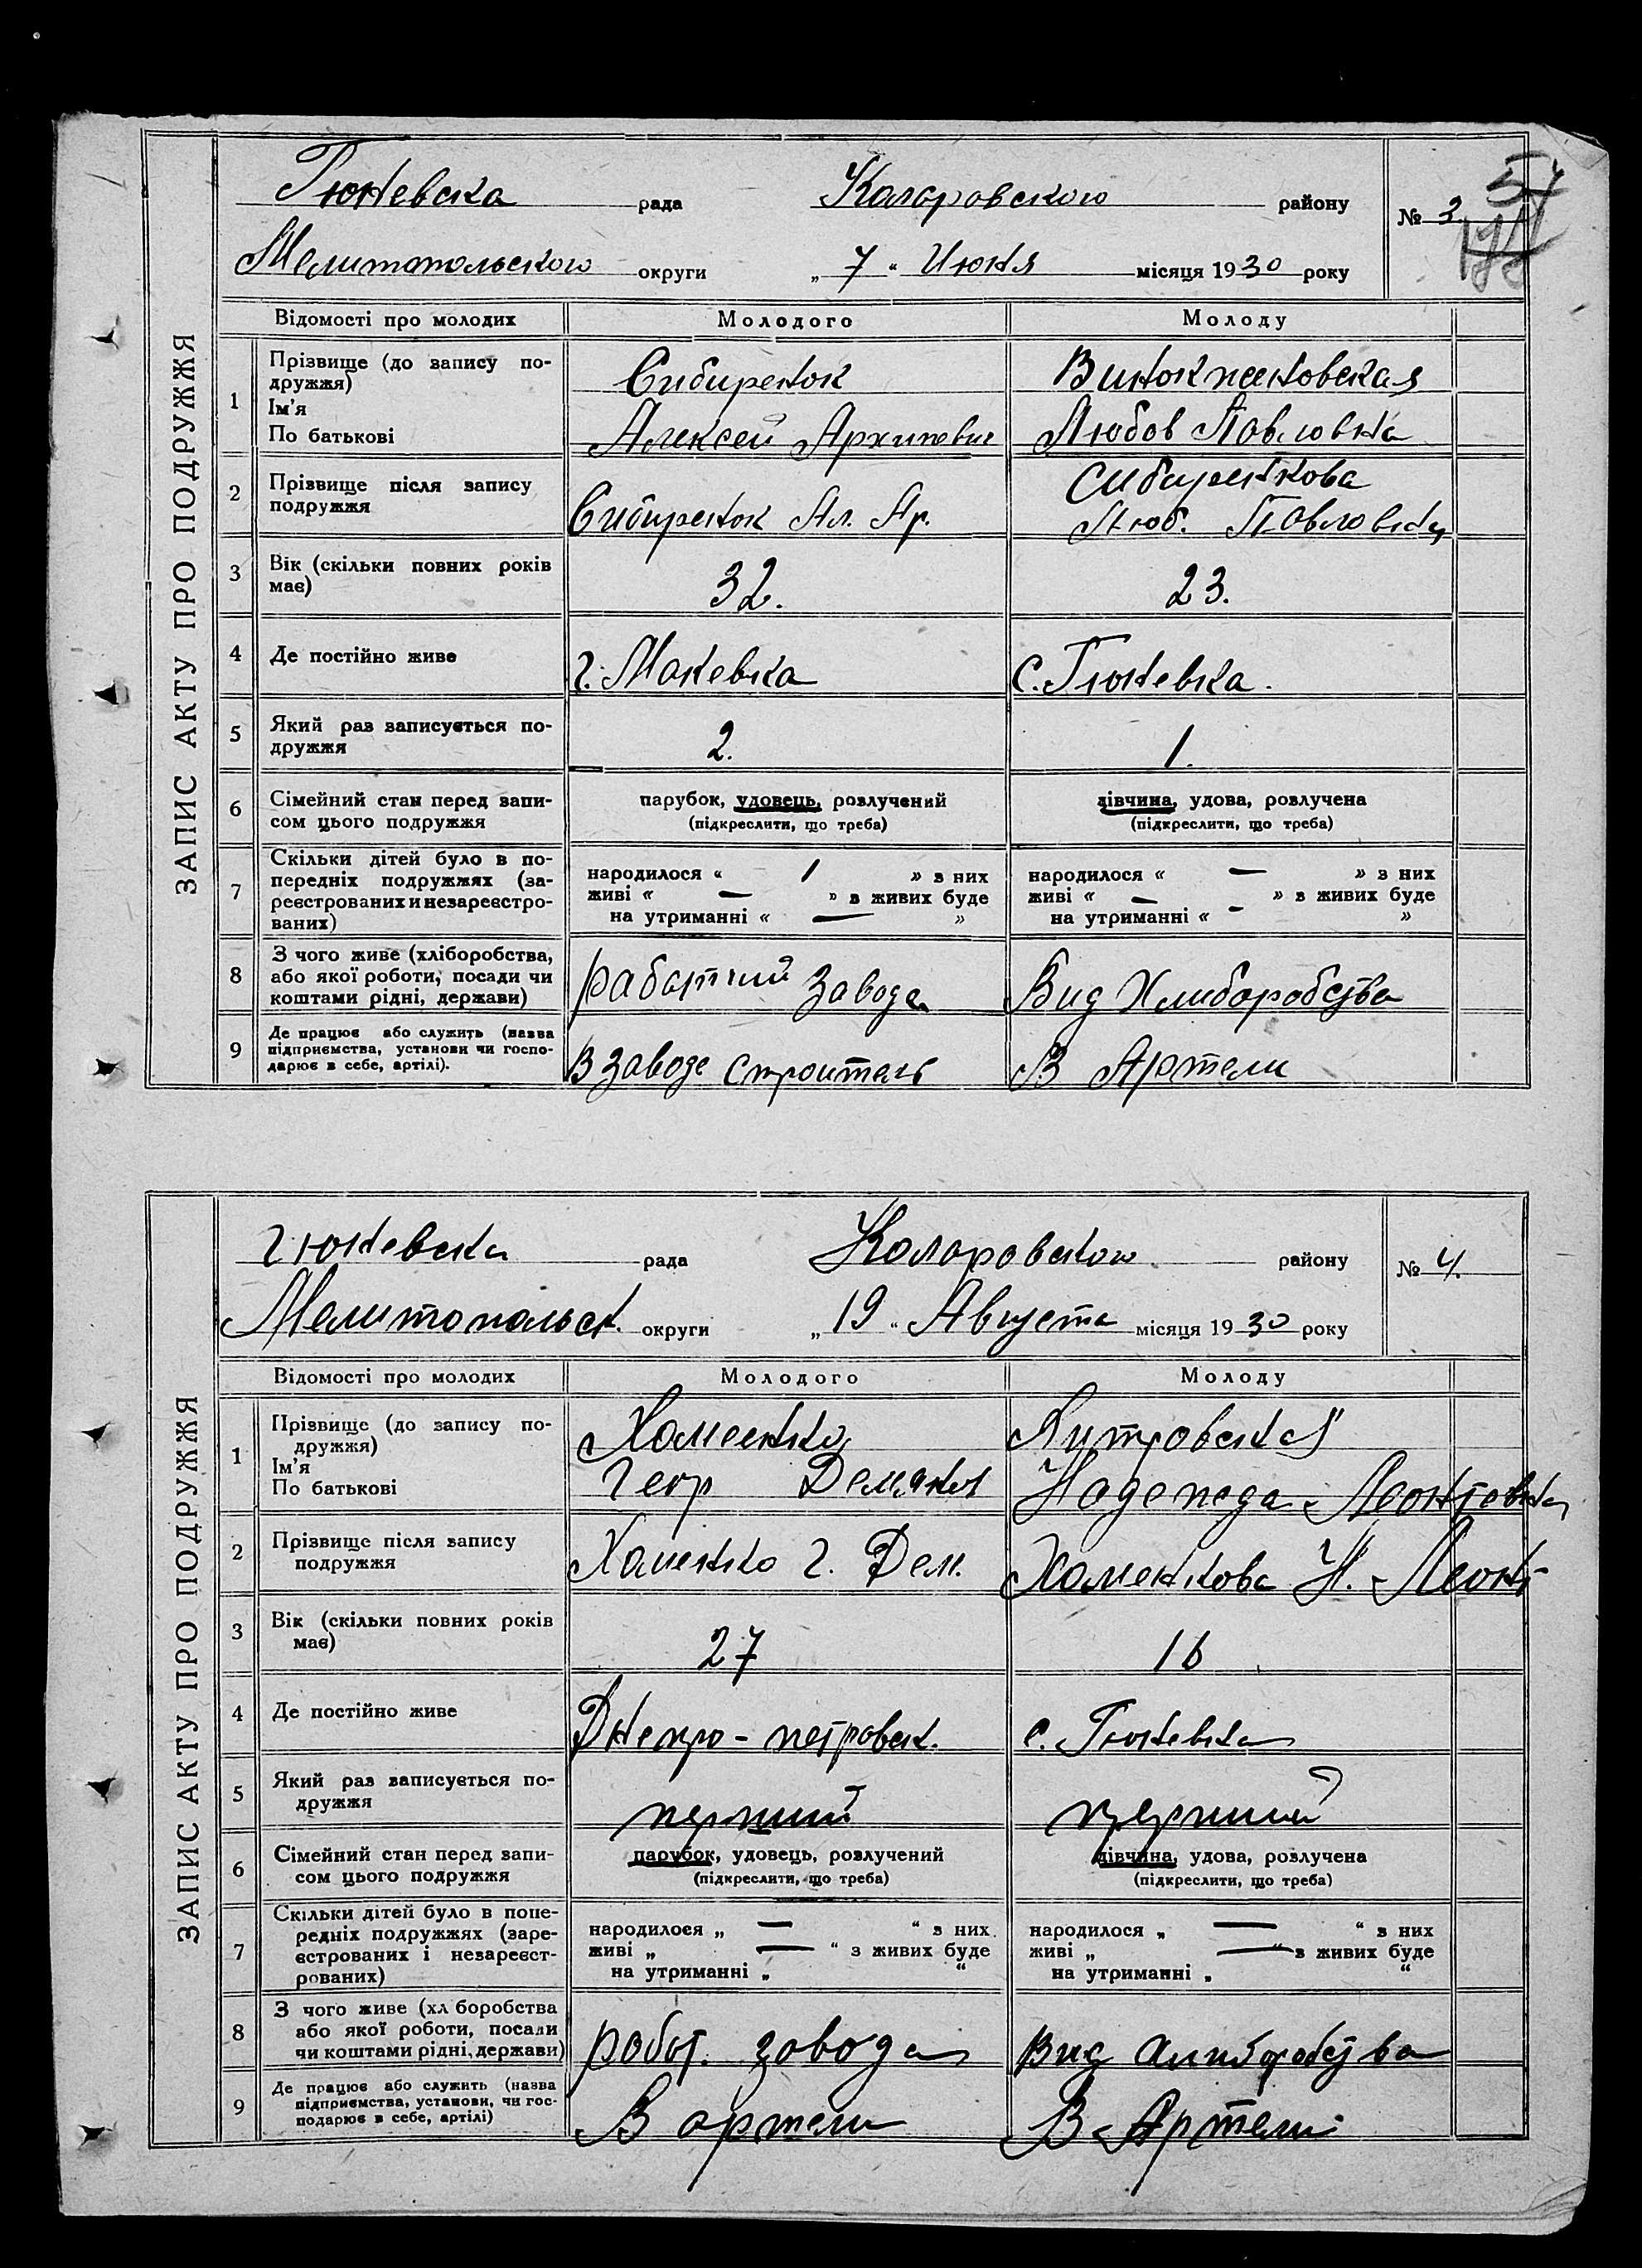 Гюневска рада Коларовского району № 3.
54
Мелитопольского округи „ 7 “ Июня місяця 1930 року
ЗАПИС АКТУ ПРО ПОДРУЖЖЯ
Відомості про молодих Молодого Молоду
1 Прізвище (до запису по-
дружжя)
Ім'я
По батькові
Сибиренок
Алексей Архипович
Любов Павловна
2 Прізвище після запису
подружжя
Сибиренок Ал. Ар.
Сибиренкова
Люб. Павловна
3 Вік (скільки повних років
має)
32. 23.
4 Де постійно живе г. Макевка с. Гюневка.
5 Який раз записується по-
дружжя
2. 1.
6 Сімейний стан перед запи-
сом цього подружжя
парубок, удовець, розлучений
(підкреслити, що треба)
дівчина, удова, розлучена
(підкреслити, що треба)
7 Скільки дітей було в по-
передніх подружжях (за-
реєстрованих и незареєстро-
ваних)
народилося « 1 » з них
живі « — » з живих буде
на утриманні « — »
народилося « — » з них
живі « — » з живих буде
на утриманні « - »
8 З чого живе (хліборобства,
або якої роботи, посади чи
коштами рідні, держави)
Работчий завода
Вид Хлиборобства
9 Де працює або служить (назва
підприємства, установи чи госпо-
дарює в себе, артілі).
В заводе строитель
В Артели
Гюневска рада Коларовского району № 4.
Мелитопольск. округи „ 19 “ Августа місяця 1930 року
ЗАПИС АКТУ ПРО ПОДРУЖЖЯ
Відомості про молодих Молодого Молоду
1 Прізвище (до запису по-
дружжя)
Ім'я
По батькові
Хоменко
Геор Демянов
Надежда Леонтевна
2 Прізвище після запису
подружжя
Хоменко Г. Дем.
Хоменкова Н. Леонт
3 Вік (скільки повних років
має)
27 16
4 Де постійно живе Днепро-петровск. с. Гюневка
5 Який раз записується по-
дружжя
перший перший
6 Сімейний стан перед запи-
сом цього подружжя
парубок, удовець, розлучений
(підкреслити, що треба)
дівчина, удова, розлучена
(підкреслити, що треба)
7 Скільки дітей було в попе-
редніх подружжях (заре-
єстрованих і незареєст-
рованих)
народилося „ — “ з них
живі „ — “ з живих буде
на утриманні „ “
народилося „ — “ з них
живі „ — “ з живих буде
на утриманні „ “
8 З чого живе (хл боробства
або якої роботи, посади
чи коштами рідні, держави)
робот. завода
Вид хлиборобства
9 Де працює або служить (назва
підприємства, установи, чи гос-
подарює в себе, артілі)
В артели
В Артели